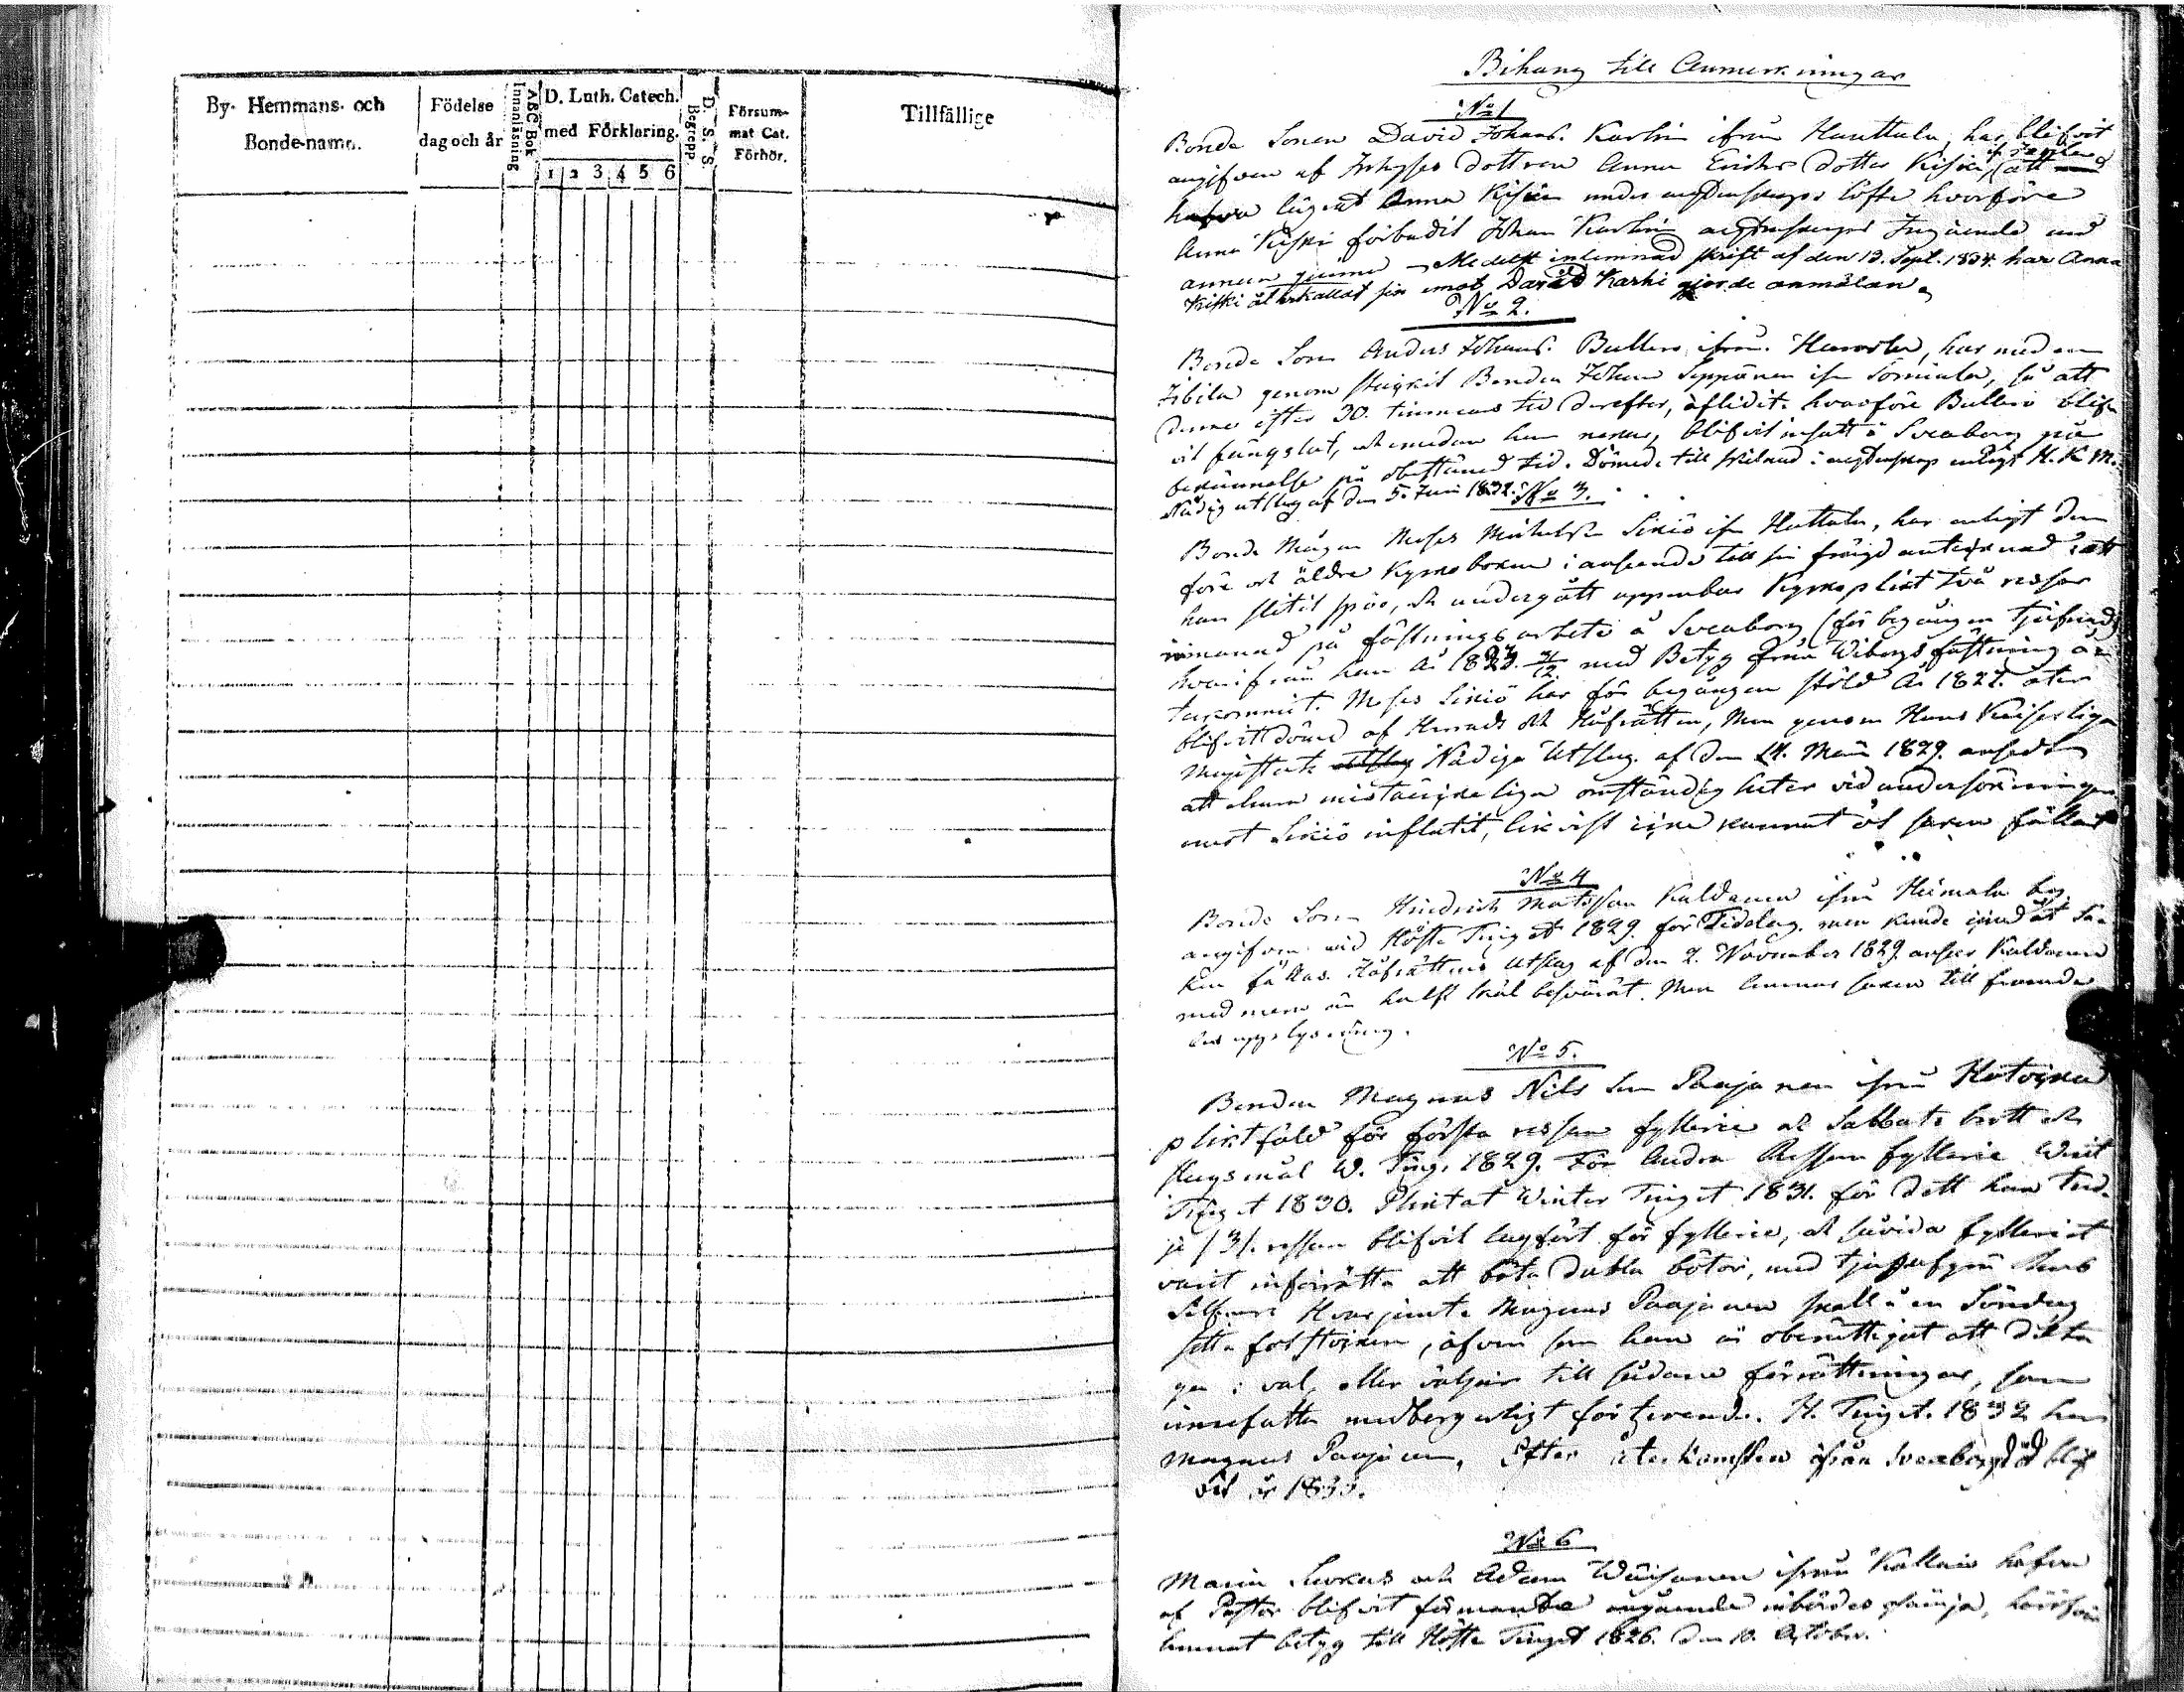 By- Hemmans- och
Bonde-namn.
Födelse
dag och år
ABC Bok
Innanläsning
D. Luth. Catech.
med Förklaring.
1 2 3 4 5 6
D. S. S.
Begrepp.
Försum-
mat Cat.
Förhör.
Tillfällige
Bihang till Anmerkningar
No 1
Bonde Sonen David Johans. Karhi ifrån Hauttala, har blifvit
angifven af dottren Anna Eriks dotter Kiski, att
hafva lägrat Anna Kiski under ägtenskaps löfte hvarföre
Anna Kiski förbudit Johan Karhi ägtenskaps Ingående med
annan qvinna Medelst inlemnad skrift af den 13. Sept. 1834. har Anna
Kiski återkallat sin emot David Karhi gjorde anmälan.
No 2.
Bonde Son Anders Johans. Bulleri ifrån, har med en
genom slagit Bonden Johan Seppänen ifr Sorniala, så att
denne efter 30. timmars tid derefter, aflidit. hvarföre Bulleri blif
vit fängslat, och emedan han nekar, blifvit insatt i Sveaborg på
bekännelse på obestämd tid. Dömde till skilnad i ägtenskap enligt H. K. M.
Nådig utslag af den 5. Juni 1832.
No 3.
Bonde Mågen Moses Michelss. Sikiö ifr Hattala, har enligt den
före och äldre Kyrkoboken i anseende till sin frägd antecknad att
han slitit spö, och undergått uppenbar Kyrkoplikt två resor
på fästnings arbete å Sveaborg (för begången tjufnad)
hvarifrån han År 1823. med Betyg från Wiborgs fästning å-
terkommit. Moses Sikiö har för begången stöld År 1827. åter
blifvit dömd af Herads och Hofrätten, men genom Hans Kejserliga
Majestets Nådiga Utslag af den 14. Maii 1829. ansedt
att ehuru misstänkeliga omständigheter vid undersökningen
emot Sikiö influtit, likvist icke kunnat åt saken fällas
No 4
Bonde Son Hindrich Matsson Kaldanen ifrån Heimala by
angifven vid Höste Tinget 1829. för Tidelag. men kunde icke åt Sa-
ken fällas. Hofrättens Utslag af den 2. November 1829. anser Kaldanen
med mera än halft skäl besvärat. Men lemnar saken till framde-
les upplysning.
No 5.
Bonden Magnus Nils Son Paajanen ifrån
pliktfäld för första resan fylleri och Sabbats brott och
slagsmål W. Ting. 1829. För Andra Ressan fylleri Wint
Tinget 1830. Pliktat Winter Tinget 1831. för dett han tred-
je /3/. ressan blifvit lagfört för fylleri, och såvida fylleriet
varit inför rätta att böta dubla böter, med tjugufyra Rub
Silfver Hvarjemte Magnus Paajanen skall å en Söndag
sitta fotstocken, äfven som han är oberättigat att delta
ga i val, eller väljas till sådane förrättningar, som
innefatta medborgerligt förtroende. H. Tinget. 1832 har
Magnus Paajanen, Efter återkomsten ifrån Sveaborg död blif
vit år 1833.
No 6
Maria och Adam Wäisänen ifrån Kallais hafva
af Pastor blifvit förmante angående inbördes sämja, hvarom
lemnat betyg till Höste Tinget 1826. den 10. October.